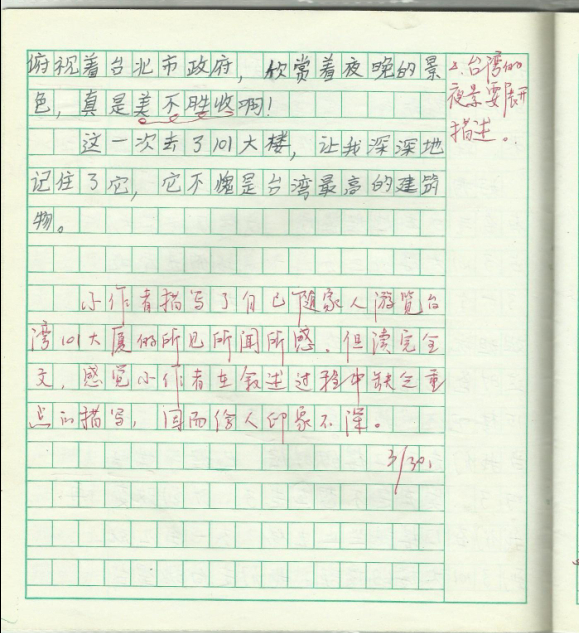 俯视着台北市政府，欣赏着夜晚的景
色，真是美不胜收啊！
这一次去了101大楼，让我深深地
记住了它，它不愧是台湾最高的建筑
物。
2.台湾的
夜景要展开
描述。
小作者描写了自己随家人游览台
湾101大厦的所见所闻所感。但读完全
文，感觉小作者在叙述过程中缺乏重
点的描写，因而给人印象不深。
3/30